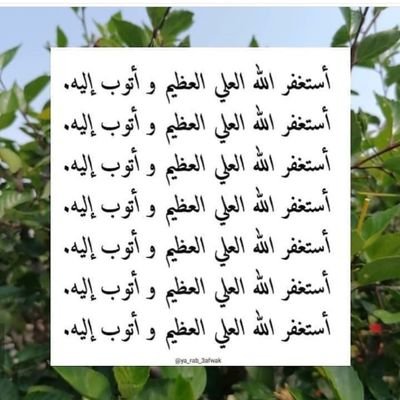 أستغفر الله العلي العظيم و أتوب إليه.
أستغفر الله العلي العظيم و أتوب إليه.
أستغفر الله العلي العظيم و أتوب إليه.
أستغفر الله العلي العظيم و أتوب إليه.
أستغفر الله العلي العظيم و أتوب إليه.
أستغفر الله العلي العظيم و أتوب إليه.
أستغفر الله العلي العظيم و أتوب إليه.
@ya_rab_3afwak